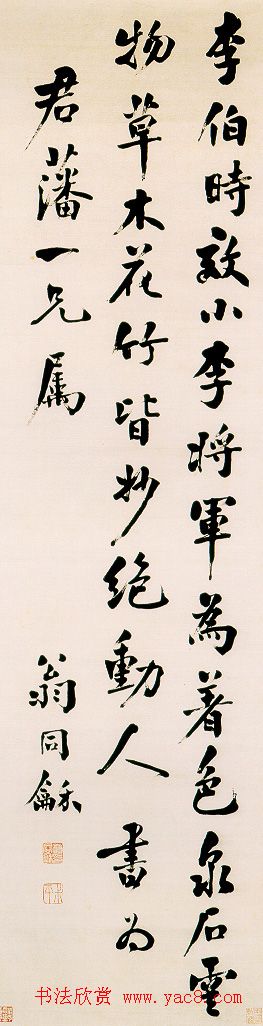 李伯時效小李將軍為著色泉石雲
物草木花竹皆妙絶動人 書為
君藩一兄属
翁同龢
书法欣赏 www.yac8.com